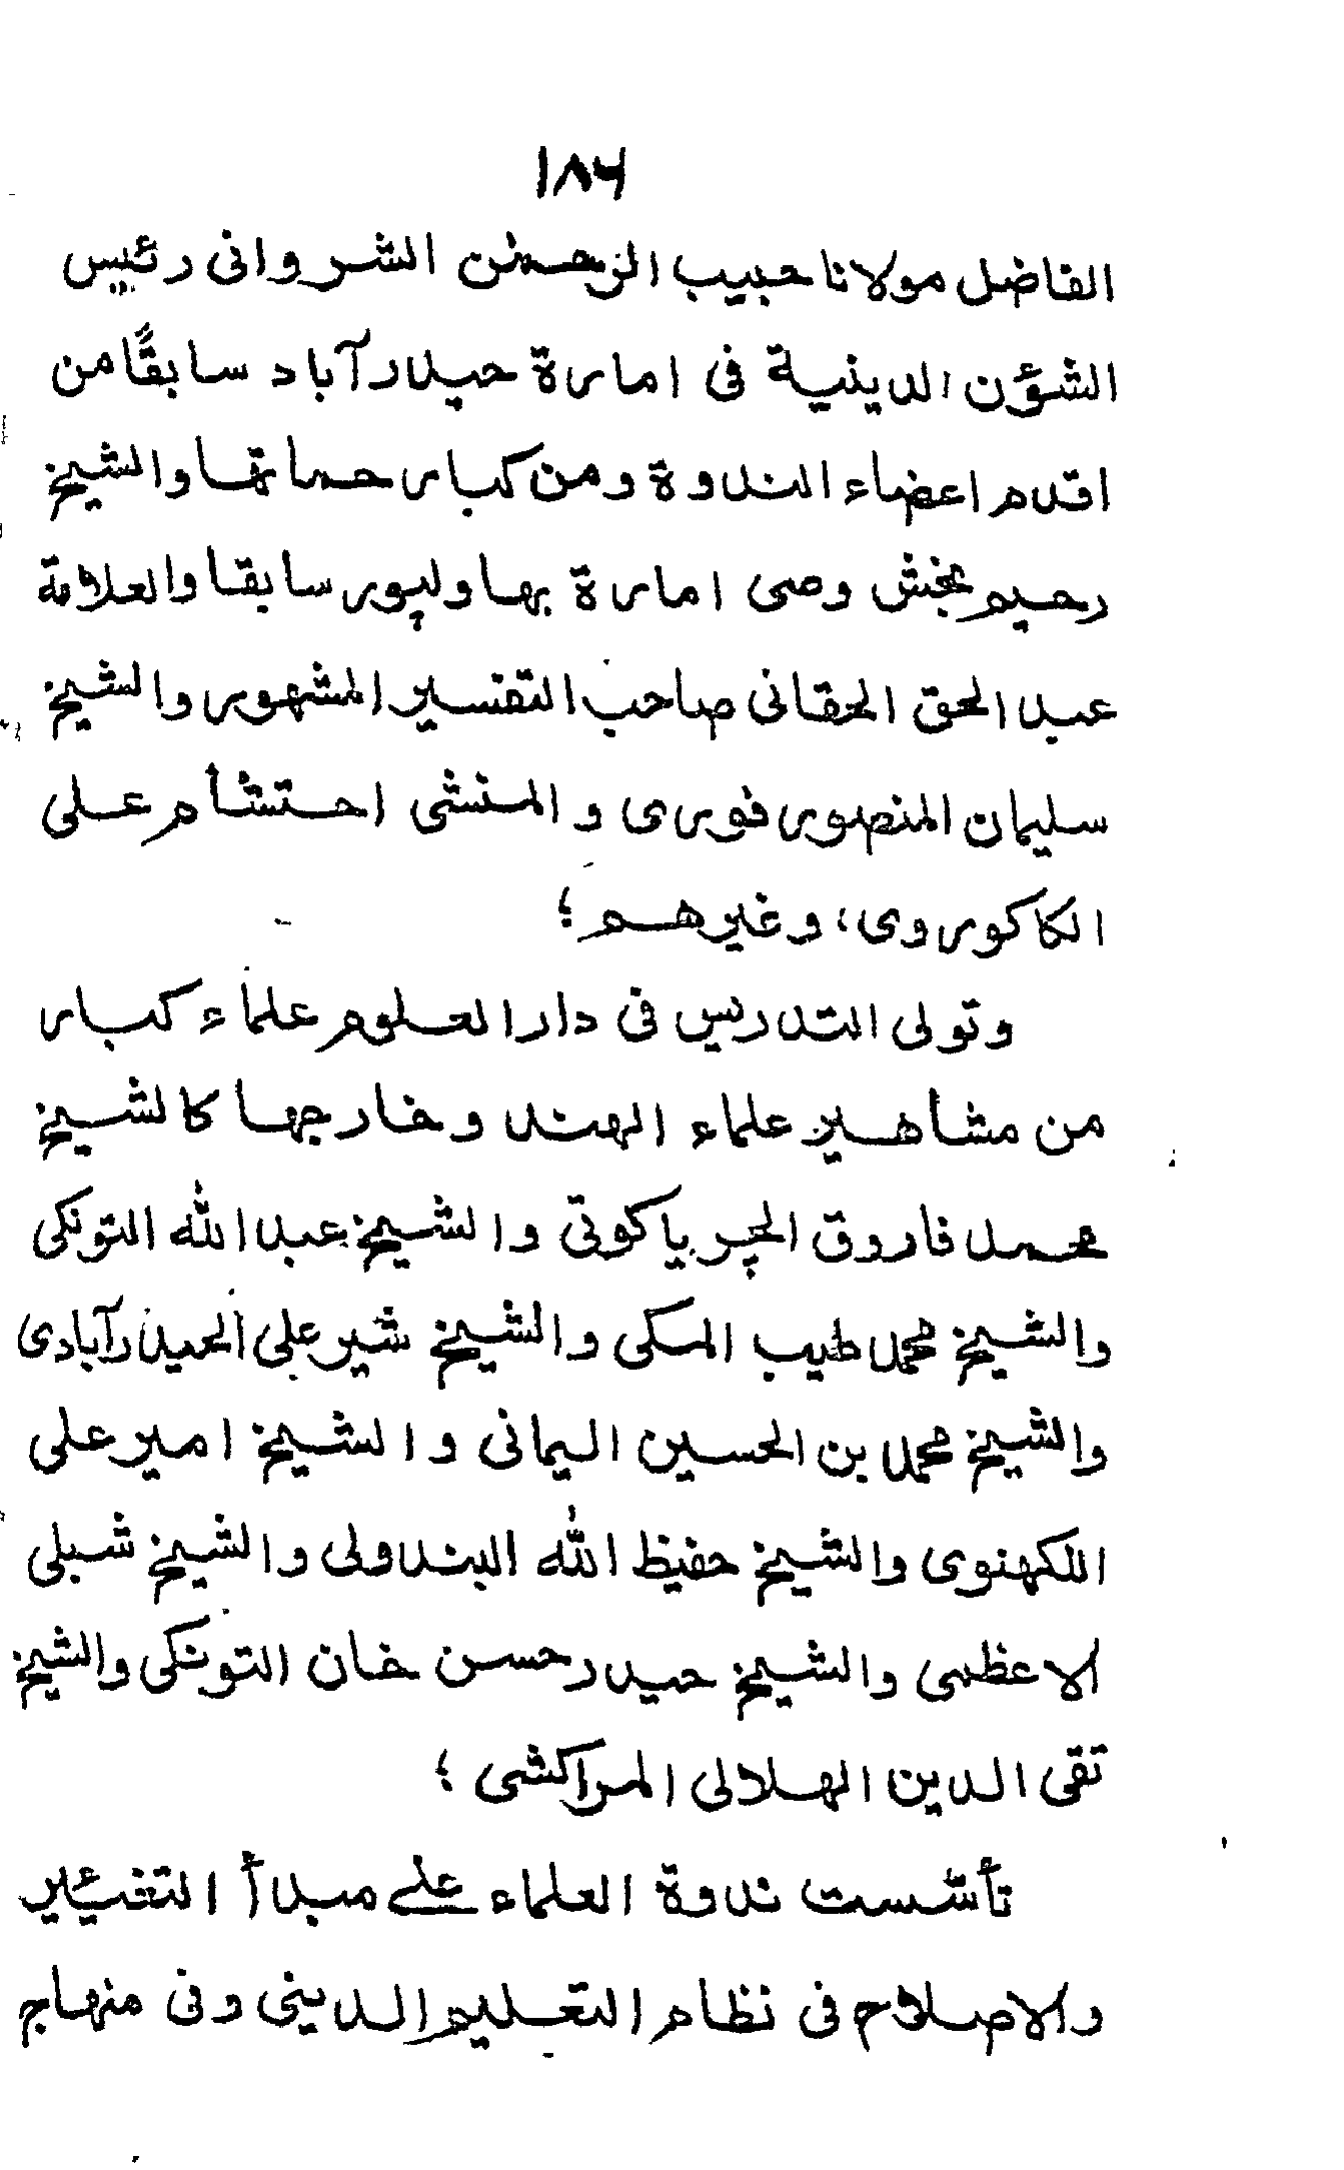 ۱۸۶
الفاضل مولانا حبيب الرحمٰن الشروانى رئيس
الشؤن الدينية فى امارة حيدرآباد سابقًا من
اقدم اعضاء الندوة ومن كبار حماتها والشيخ
رحيم بخش وصى امارة بهاولپور سابقا والعلامة
عبد الحق الحقانى صاحب التفسير المشهور والشيخ
سليمان المنصور فورى و المنشى احتشام على
الكاكوروى، وغيرهم ؛
وتولى التدريس فى دار العلوم علماء كبار
من مشاهير علماء الهند وخارجها كالشيخ
محمد فاروق الچرياكوتى والشيخ عبد الله التونكى
والشيخ محمد طيب المكى والشيخ شير على الحيدرآبادى
والشيخ محمد بن الحسين اليمانى والشيخ امير على
اللكهنوى والشيخ حفيظ الله البندولى والشيخ شبلى
الاعظمى والشيخ حيدر حسن خان التونكى والشيخ
تقى الدين الهلالى المراكشى ؛
تأسّست ندوة العلماء على مبدأ التغيير
والاصلاح فى نظام التعليم الدينى وفى منهاج